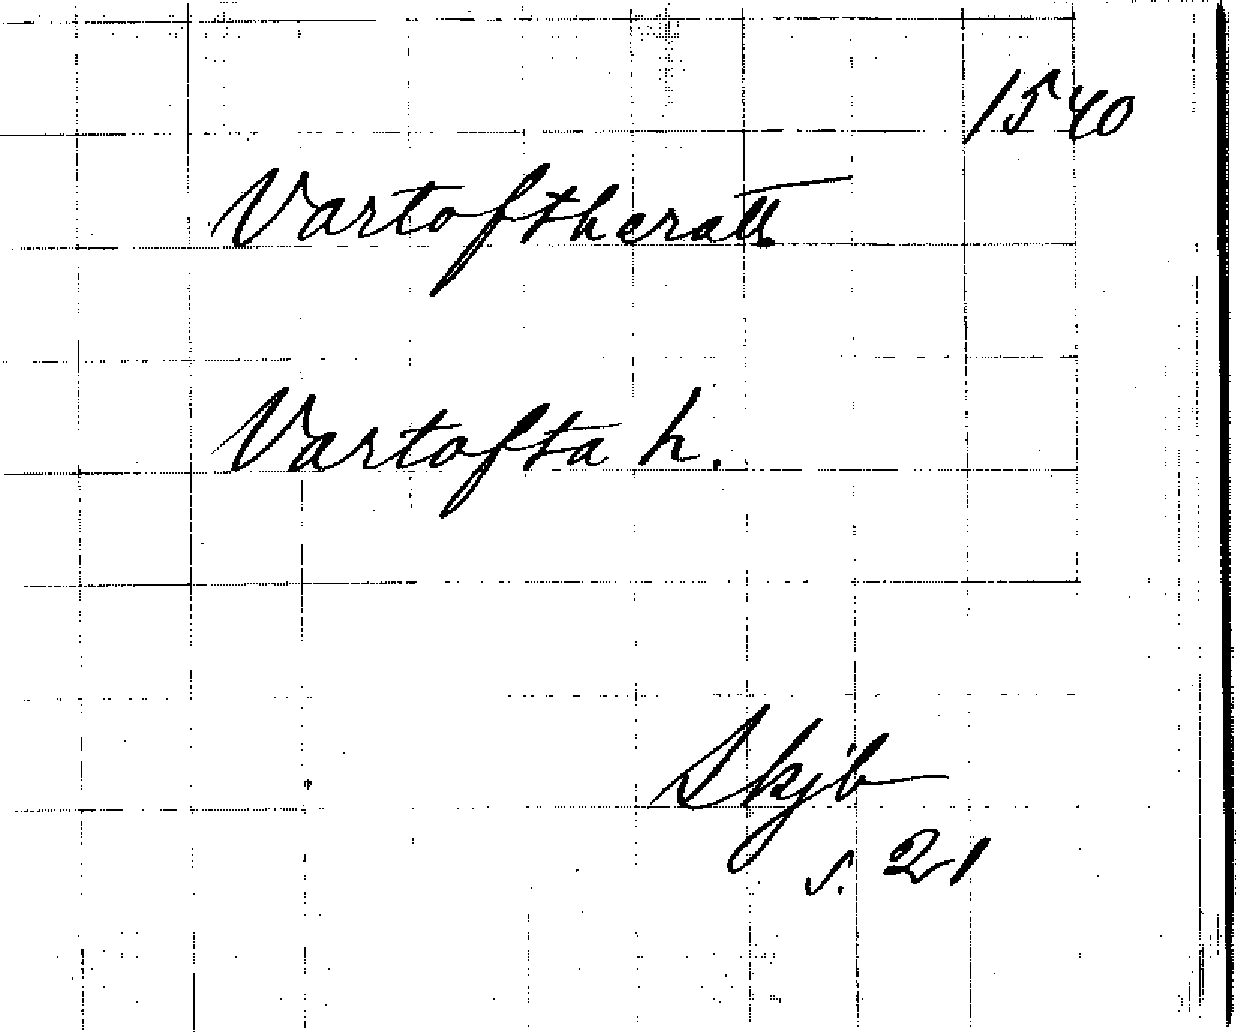 1540
Vartoftheratt
Vartofta h.
Skjb
s. 21